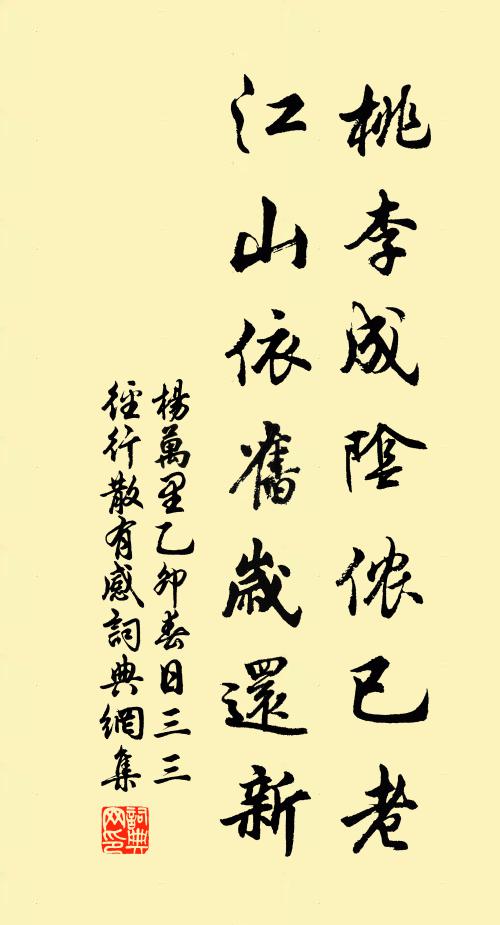 桃李成陰侬已老
江山依舊歲還新
楊萬里乙卯春日三三
徑行散有感詞典網集
詞典
网印